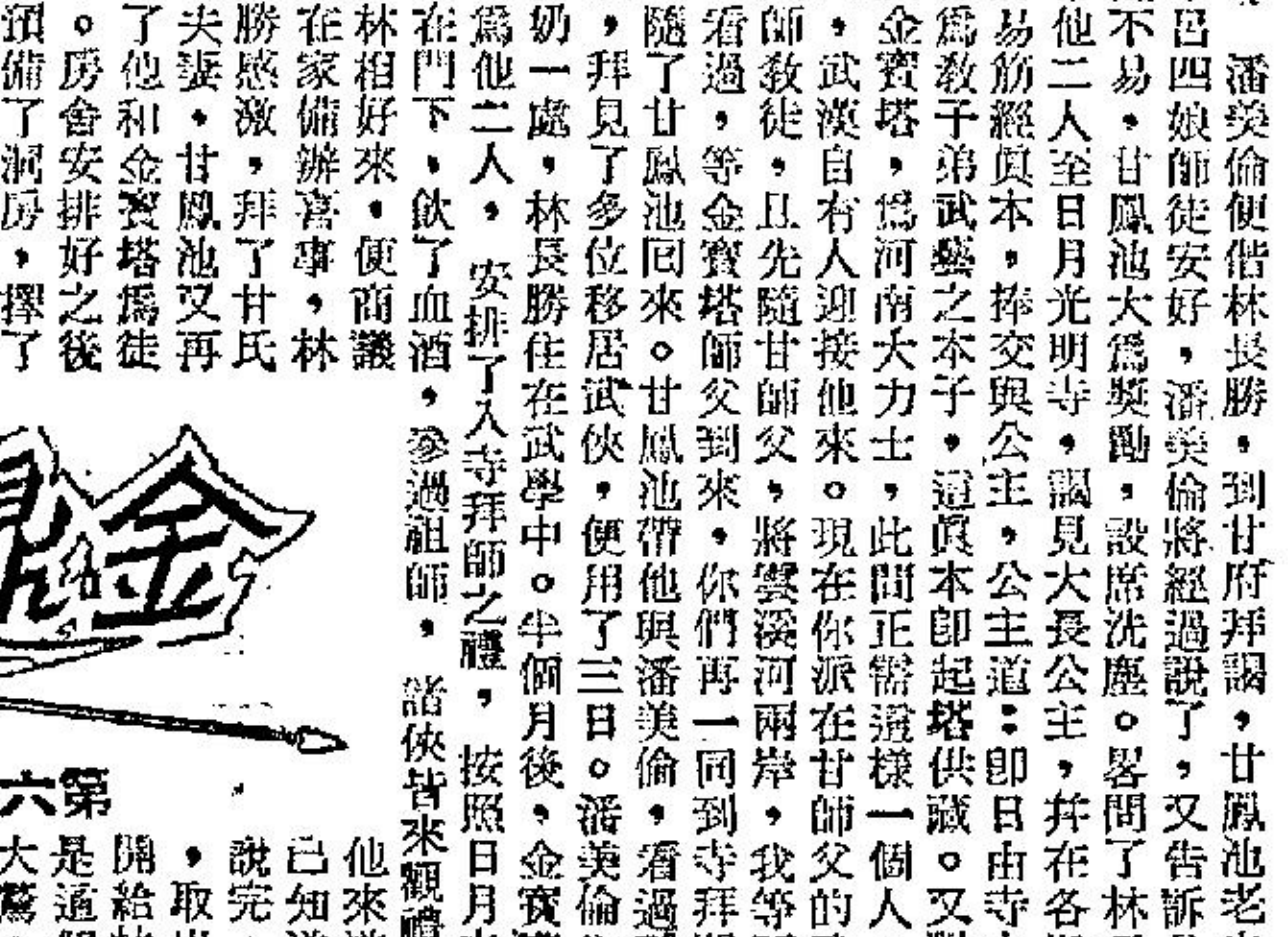 潘美倫便偕林長勝,到甘府拜謁,甘鳳池老
呂四娘師徒安好,潘美倫將經過說了,又告訴
不易,甘鳳池大爲獎勵,設席洗塵。畧問了林
他二人至日月光明寺,謁見大長公主,并在各
易筋經眞本,捧交與公主,公主道:卽日由寺
爲敎子弟武藝之本子,這眞本卽起塔供藏。又
金寶塔,爲河南大力士,此間正需這樣一個人
,武漢自有人迎接他來。現在你派在甘師父的
師敎徒,且先隨甘師父,將雲溪河兩岸,我等
看過,等金寶塔師父到來,你們再一同到寺拜
隨了甘鳳池回來。甘鳳池帶他與潘美倫,看過
,拜見了多位移居武俠,便用了三日。潘美倫
奶一處,林長勝住在武學中。半個月後,金寶
爲他二人,安排了入寺拜師之禮,按照日月
在門下,飲了血酒,參過祖師,諸俠皆來觀禮
林相好來,便商議
在家備辦喜事,林
勝感激,拜了甘氏
夫妻,甘鳳池又再
了他和金寶塔爲徒
。房舍安排好之後
預備了洞房,擇了
金
第六
他來
已知
說完
,取
開給
是遁
大驚